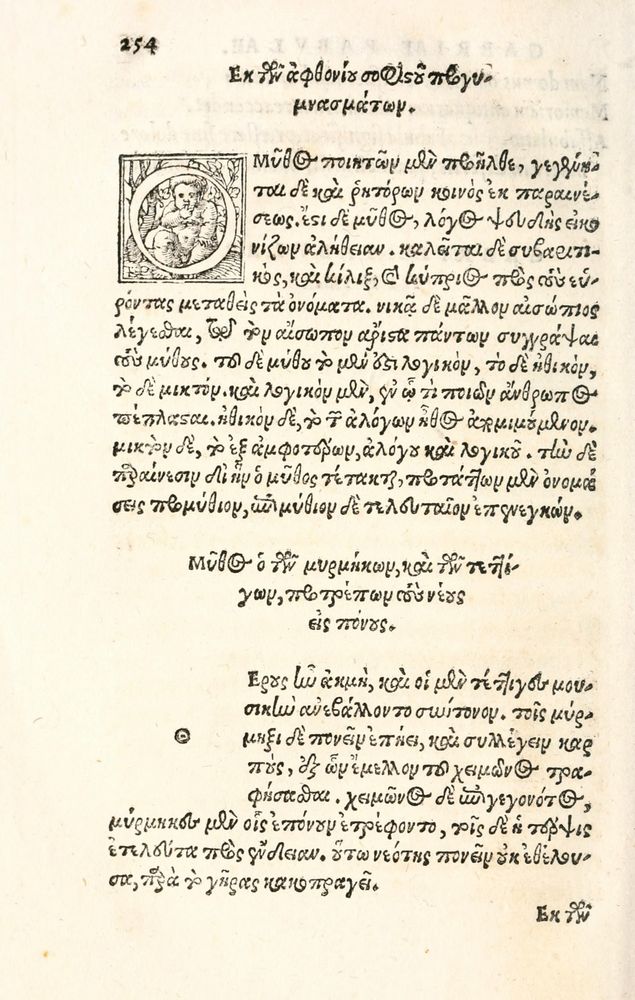 254
Ἐκ τῶν ἀφθονίου σοφιστοῦ προγυ-
μνασμάτων.
Ὁ Μῦθος ποιητῶν μὲν προῆλθε, γεγένη-
ται δὲ καὶ ῥητόρων κοινὸς ἐκ παραινέ-
σεως. ἔστι δὲ μῦθος, λόγος ψευδὴς εἰκο
νίζων ἀλήθειαν. καλεῖται δὲ συβαριτι-
κὸς, καὶ κίλιξ, καὶ κύπριος πρὸς τοὺς εὑ-
ρόντας μεταθεὶς τὰ ὀνόματα. νικᾷ δὲ μᾶλλον αἰσώπιος
λέγεσθαι, τῷ τὸν αἴσωπον ἄριστα πάντων συγγράψαι
τοὺς μύθους. τοῦ δὲ μύθου τὸ μὲν ἐστι λογικὸν, τὸ δὲ ἠθικὸν,
τὸ δὲ μικτόν. καὶ λογικὸν μὲν, ἐν ᾧ τὶ ποιῶν ἄνθρωπος
πέπλασται. ἠθικὸν δὲ, τὸ τῶν ἀλόγων ἦθος ἀπομιμούμενον.
μικτὸν δὲ, τὸ ἐξ ἀμφοτέρων, ἀλόγου καὶ λογικοῦ. τὴν δὲ
παραίνεσιν δι ἣν ὁ μῦθος τέτακται, προτάττων μὲν ὀνομά
σεις προμύθιον, ἐπιμύθιον δὲ τελευταῖον ἐπενεγκών.
Μῦθος ὁ τῶν μυρμήκων, καὶ τῶν τεττί-
γων, προτρέπων τοὺς νέους
εἰς πόνους.
Θέρους ἦν ἀκμὴ, καὶ οἱ μὲν τέττιγες μου-
σικὴν ἀνεβάλλοντο σύντονον. τοῖς μύρ-
μηξι δὲ πονεῖν ἐπῄει, καὶ συλλέγειν καρ
ποὺς, ἐξ ὧν ἔμελλον τοῦ χειμῶνος τρα-
φήσεσθαι. χειμῶνος δὲ ἐπιγεγονότος,
μύρμηκες μὲν οἷς ἐπόνουν ἐτρέφοντο, τοῖς δὲ ἡ τέρψις
ἐτελεύτα πρὸς ἔνδειαν. οὕτω νεότης πονεῖν οὐκ ἐθέλου-
σα, παρὰ τὸ γῆρας κακοπραγεῖ.
Ἐκ τῶν